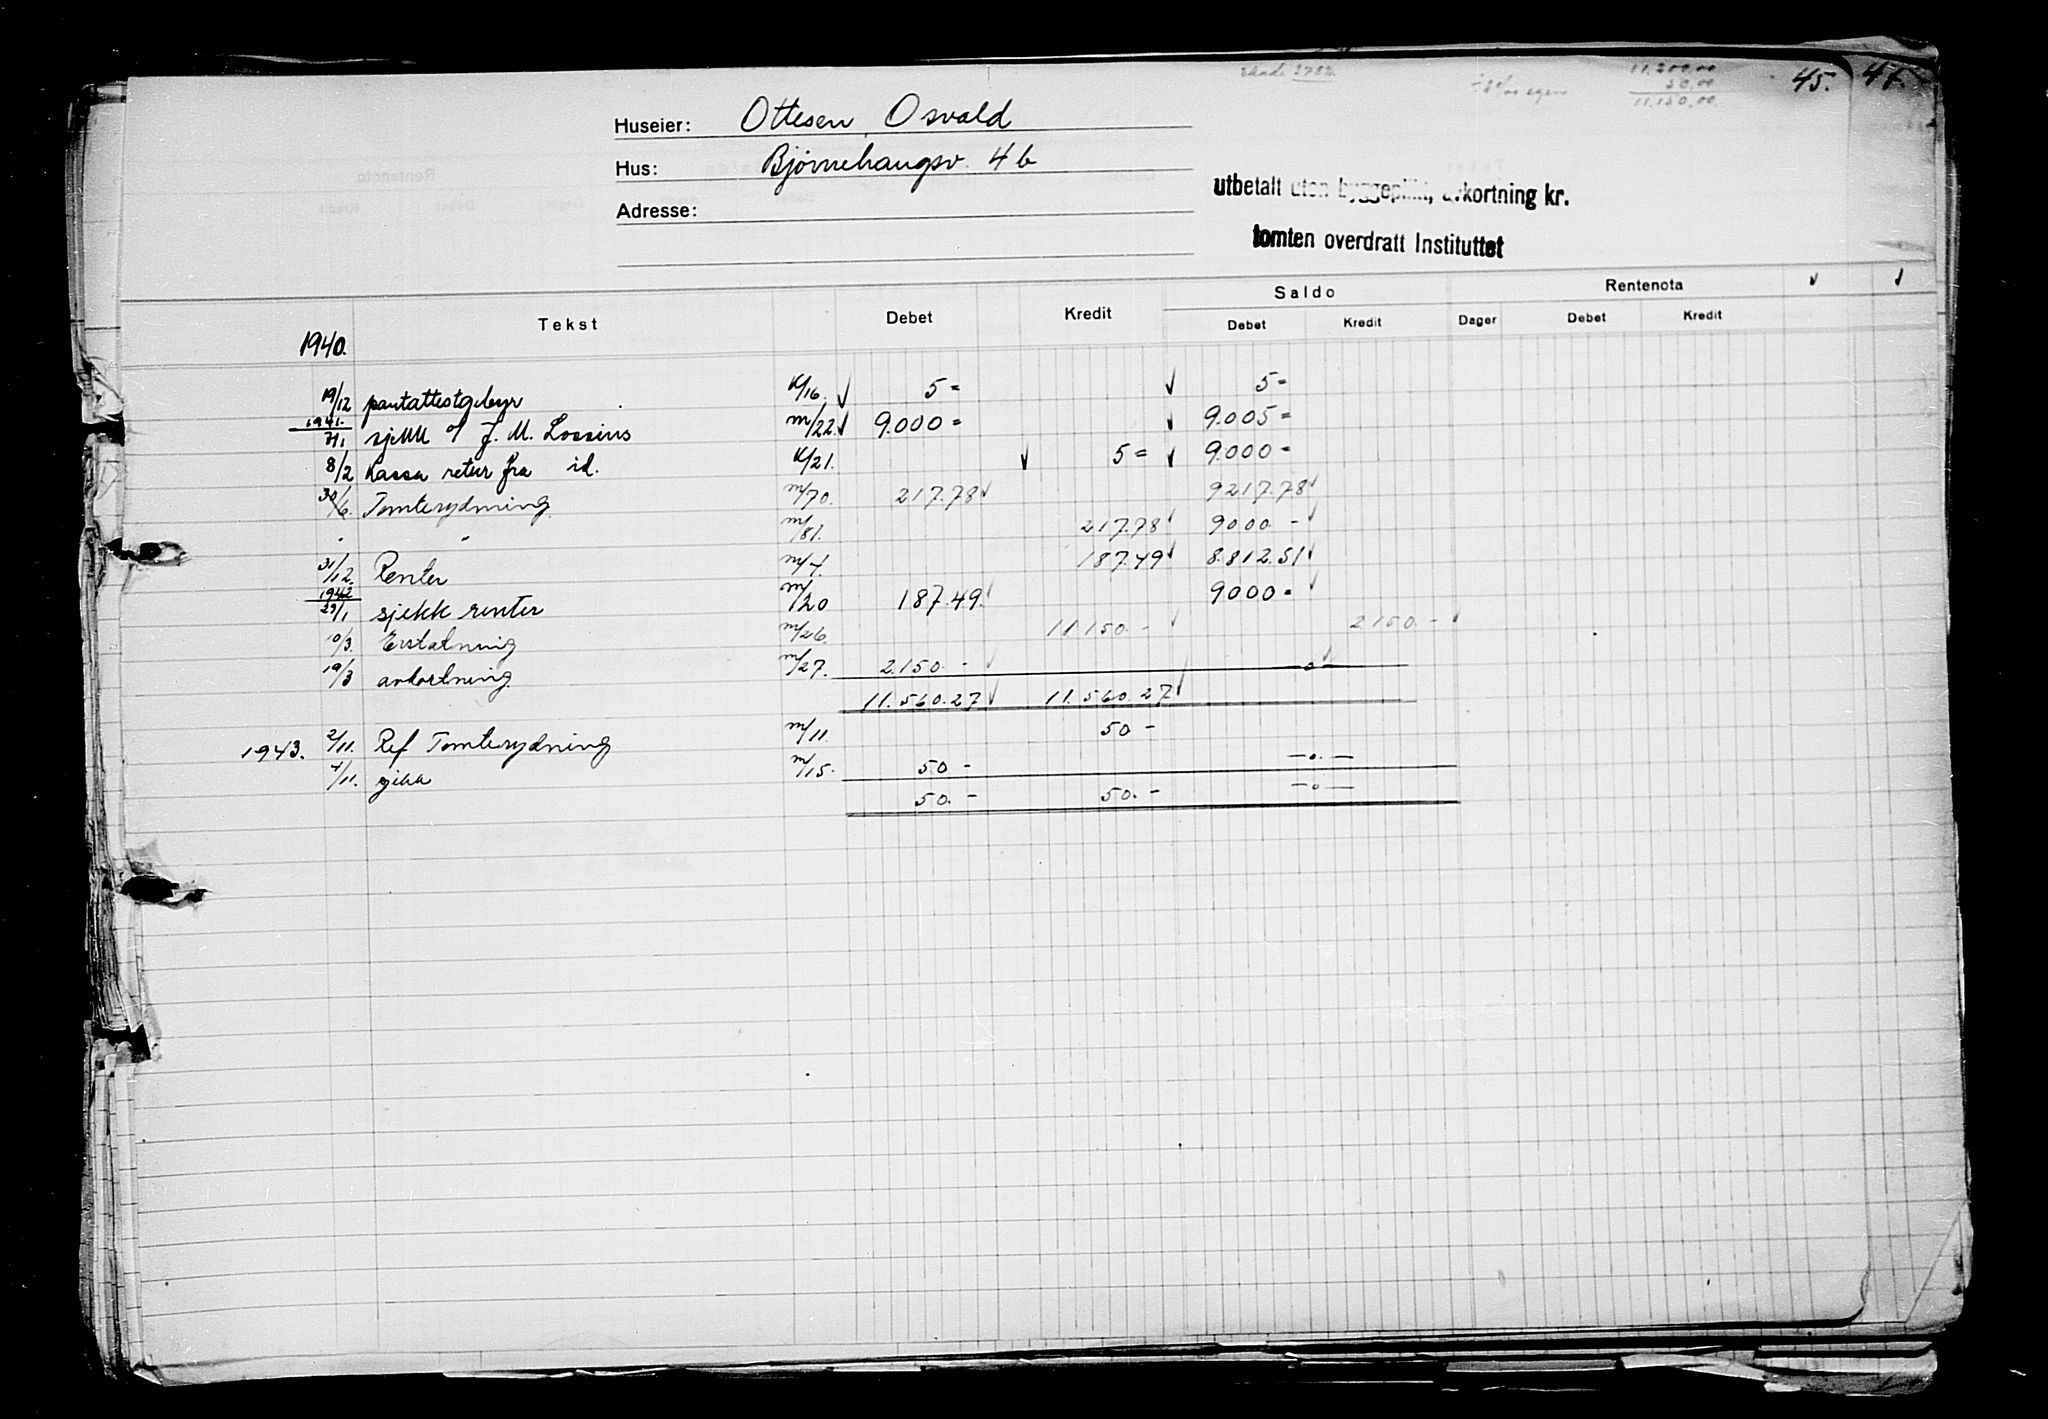 45. 47.
11.200,00
50,00
11.150,00
Huseier: Ottesen, Osvald
Hus: Bjørnehaugsv. 4b
Adresse:
utbetalt uten byggeplikt, avkortning kr.
tomten overdratt Instituttet
Tekst Debet Kredit Saldo Rentenota
Debet Kredit Dager Debet Kredit
1940.
19/12 pantattestgebyr K/16. 5= 5=
1941.
21/1 sjekk J. M. Lossius m/22. 9.000= 9.005=
8/2 Kassa retur fra id. K/21. 5= 9.000=
30/6. Tomterydning m/70. 217.78 9217.78
" " m/81. 217.78 9000 -
31/12. Renter m/7. 187.49 8.812.51
1942
29/1 sjekk renter m/20 187.49. 9000=
10/3. Erstatning m/26. 11.150.- 2.150.-
19/3 avkortning m/27. 2.150.- -o-
11.560.27 11.560.27
1943. 2/11. Ref Tomterydning m/11. 50 -
4/11. sjekk m/15. 50 - -o-
50.- 50.- -o-